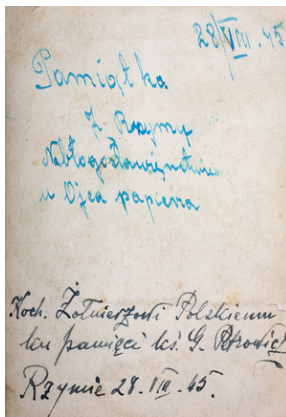 28/VIII.45
Pamiątka
z Rzymy
Nabłogosławieństwie
u Ojca papieza
Koch. Żołnierzowi Polskiemu
ku pamięci ks. G.
Rzymie 28.VIII.45.